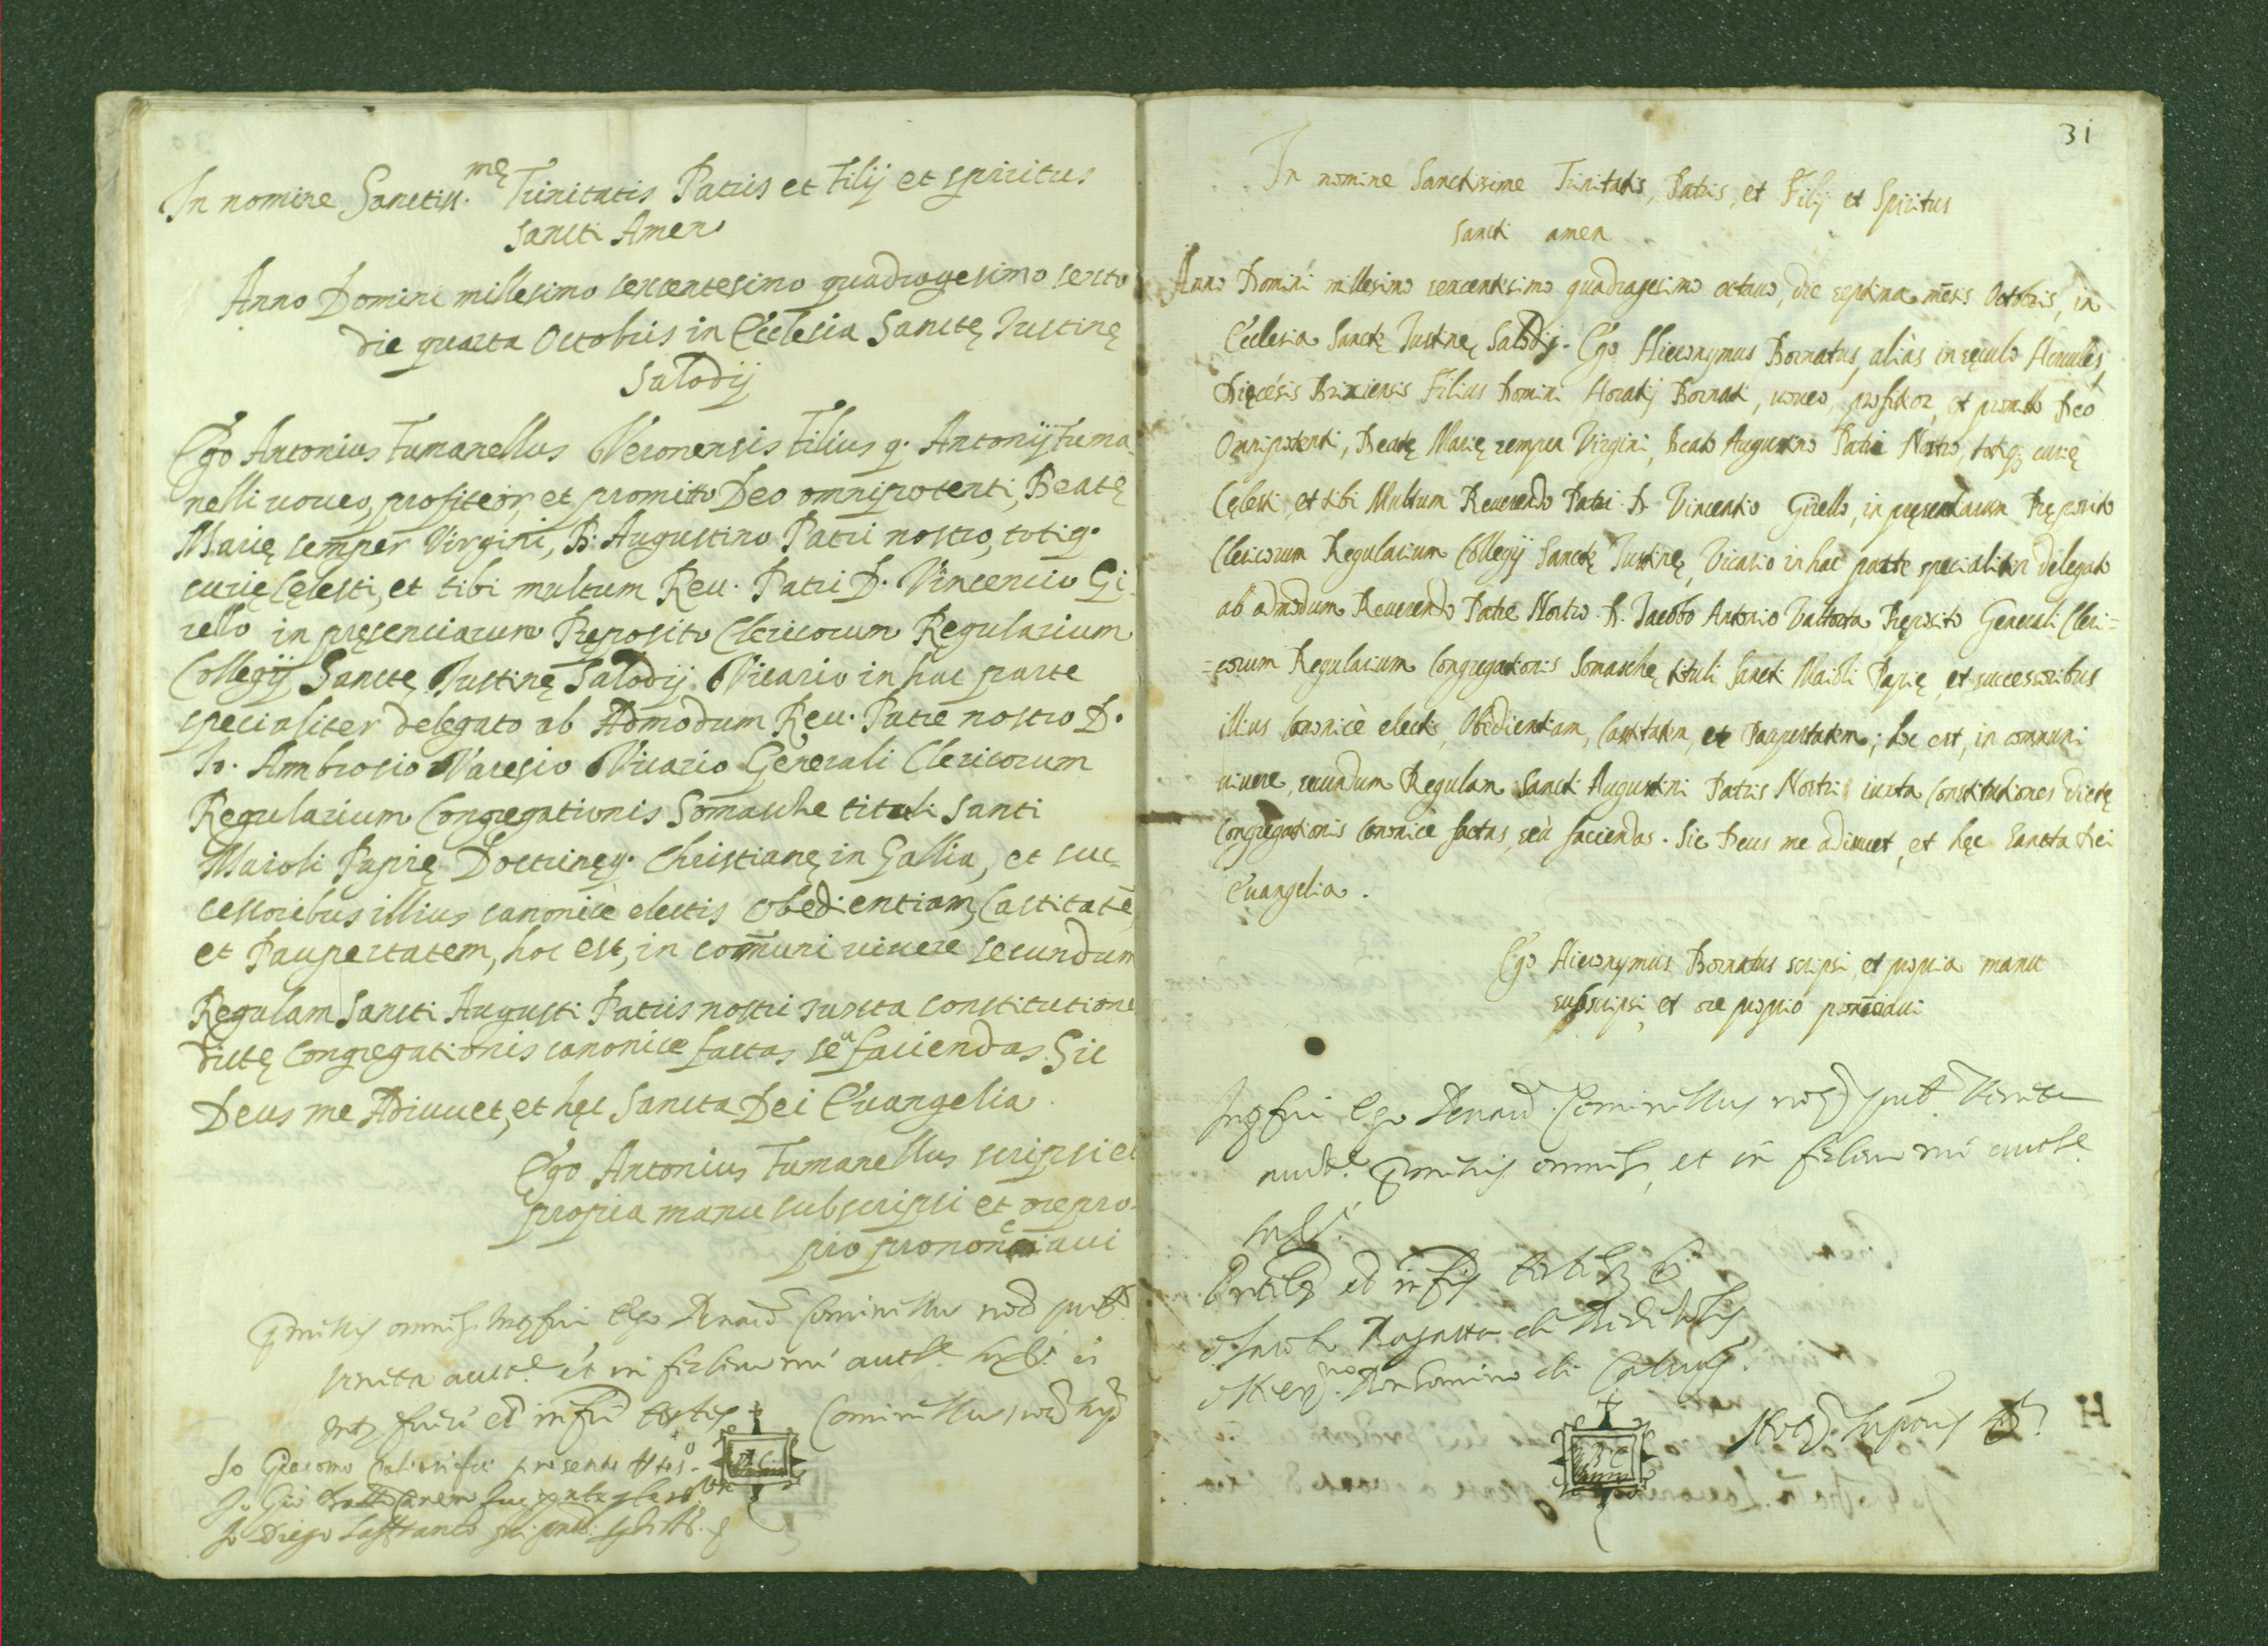 In nomine Sanctiss.mę Trinitatis Patris et Filij et spiritus
Sancti Amen
Anno Domini millesimo sexcentesimo quadragesimo sexto
die quarta Octobris in Ecclesia Sanctę Iustinę
Salodij
Ego Antonius Fumanellus Veronensis Filius q. Antonij Fuma
nelli uoueo, profiteor, et promitto Deo omnipotenti, Beatę
Marię semper Virgini, B. Augustino Patri nostro, totiq.
curię Cęlesti, et tibi multum Reu. Patri D. Vincencio Gi
rello in pręsenciarum Pręposito Clericorum Regularium
Collegij Sanctę Iustinę Salodij Vicario in hac parte
specialiter delegato ab Admodum Reu. Patre nostro D.
Io. Ambrosio Varesio Vicario Generali Clericorum
Regularium Congregationis Somasche tituli Santi
Maioli Papię Doctrinęq. Christianę in Gallia, et suc-
cessoribus illius canonicè electis Obedientiam, Castitatē,
et Paupertatem, hoc est, in com̄uni uiuere secundum
Regulam Sancti Augusti Patris nostri iuxta constitutione
dictę Congregationis canonice factas seu faciendas. Sic
Deus me Adiuuet, et hęc Sancta Dei Euangelia.
Ego Antonius Fumanellus scripsi et
propria manu subscripsi et ore pro-
prio prononciaui
omnib. Ego Cominellus nod. pub.
et in
et testes Cominellus
Io Giacomo fui presente
Io Gio Batta fui
Io Diego Lanfranco fui
31
In nomine Sanctissime Trinitatis, Patris, et Filij et Spiritus
Sancti amen
Anno Domini millesimo sexcentesimo quadragesimo octauo, die septima mēsis Octobris, in
Ecclesia Sanctę Iustinę Salodij. Ego Hieronymus Bornatus, aliàs in sęculo Hercules,
Dięcesis Brixiensis Filius Domini Horatij Bornati, uoueo, profiteor, et promitto Deo
Omnipotenti, Beatę Marię semper Virgini, Beato Augustino Patri Nostro, totiq; curię
Cęlesti, et tibi Multum Reuerendo Patri D. Vincentio Girello, in pręsentiarum Pręposito
Clericorum Regularium Collegij Sanctę Iustinę, Vicario in hac parte specialiter delegato
ab admodum Reuerendo Patre Nostro D. Iacobo Antonio Valtorta Pręposito Generali Cleri=
=corum Regularium Congregationis Somaschę tituli Sancti Maioli Papię, et successoribus
illius Canonicè electis, Obedientiam, Castitatem, et Paupertatem; hoc est, in communi
uiuere, secundum Regulam Sancti Augustini Patris Nostri iuxta Constitutiones dictę
Congregationis Canonicè factas, seù faciendas. Sic Deus me adiuuet, et hęc Sancta Dei
Euangelia.
Ego Hieronymus Bornatus scripsi, et propria manu
subscripsi, et ore proprio pronūciaui
Ego Cominellus nod. pub.
omnib., et in